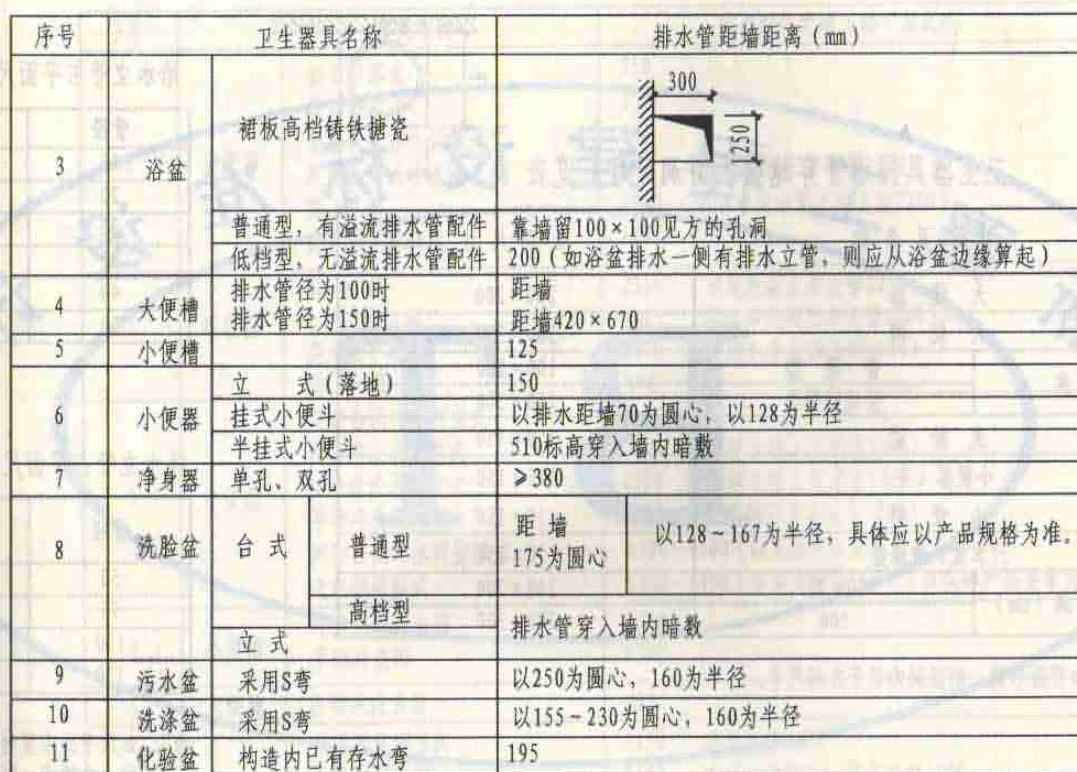 序号 卫生器具名称 排水管距墙距离(mm)
3 浴盆 裙板高档铸铁搪瓷 300 250
普通型，有溢流排水管配件 靠墙留100×100见方的孔洞
低档型，无溢流排水管配件 200(如浴盆排水一侧有排水立管，则应从浴盆边缘算起)
4 大便槽 排水管径为100时 距墙
排水管径为150时 距墙420×670
5 小便槽 125
6 小便器 立 式(落地) 150
挂式小便斗 以排水距墙70为圆心，以128为半径
半挂式小便斗 510标高穿入墙内暗敷
7 净身器 单孔、双孔 ≥380
8 洗脸盆 台 式 普通型 距 墙 以128~167为半径，具体应以产品规格为准。
175为圆心
高档型 排水管穿入墙内暗敷
立 式
9 污水盆 采用S弯 以250为圆心，160为半径
10 洗涤盆 采用S弯 以155~230为圆心，160为半径
11 化验盆 构造内已有存水弯 195